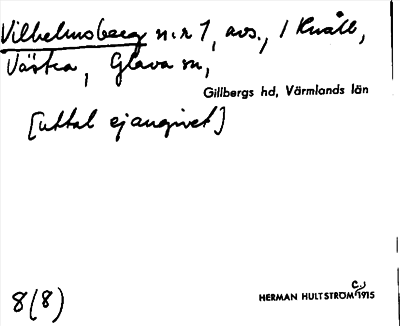 Vilhelmsberg n:r 1, avs., i Knåll,
Västra, Glava sn,
Gillbergs hd, Värmlands län
[uttal ej angivet]
8(8)
HERMAN HULTSTRÖM 1915